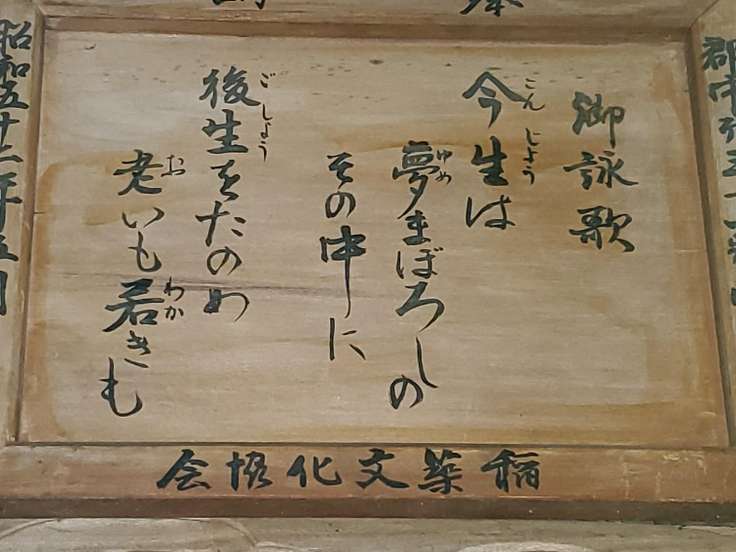 郡中
御詠歌
こんじょう
今生は
ゆめ
夢まぼろしの
その中に
ごしょう
後生をたのめ
お わか
老いも若きも
昭和五十
稲築文化協会